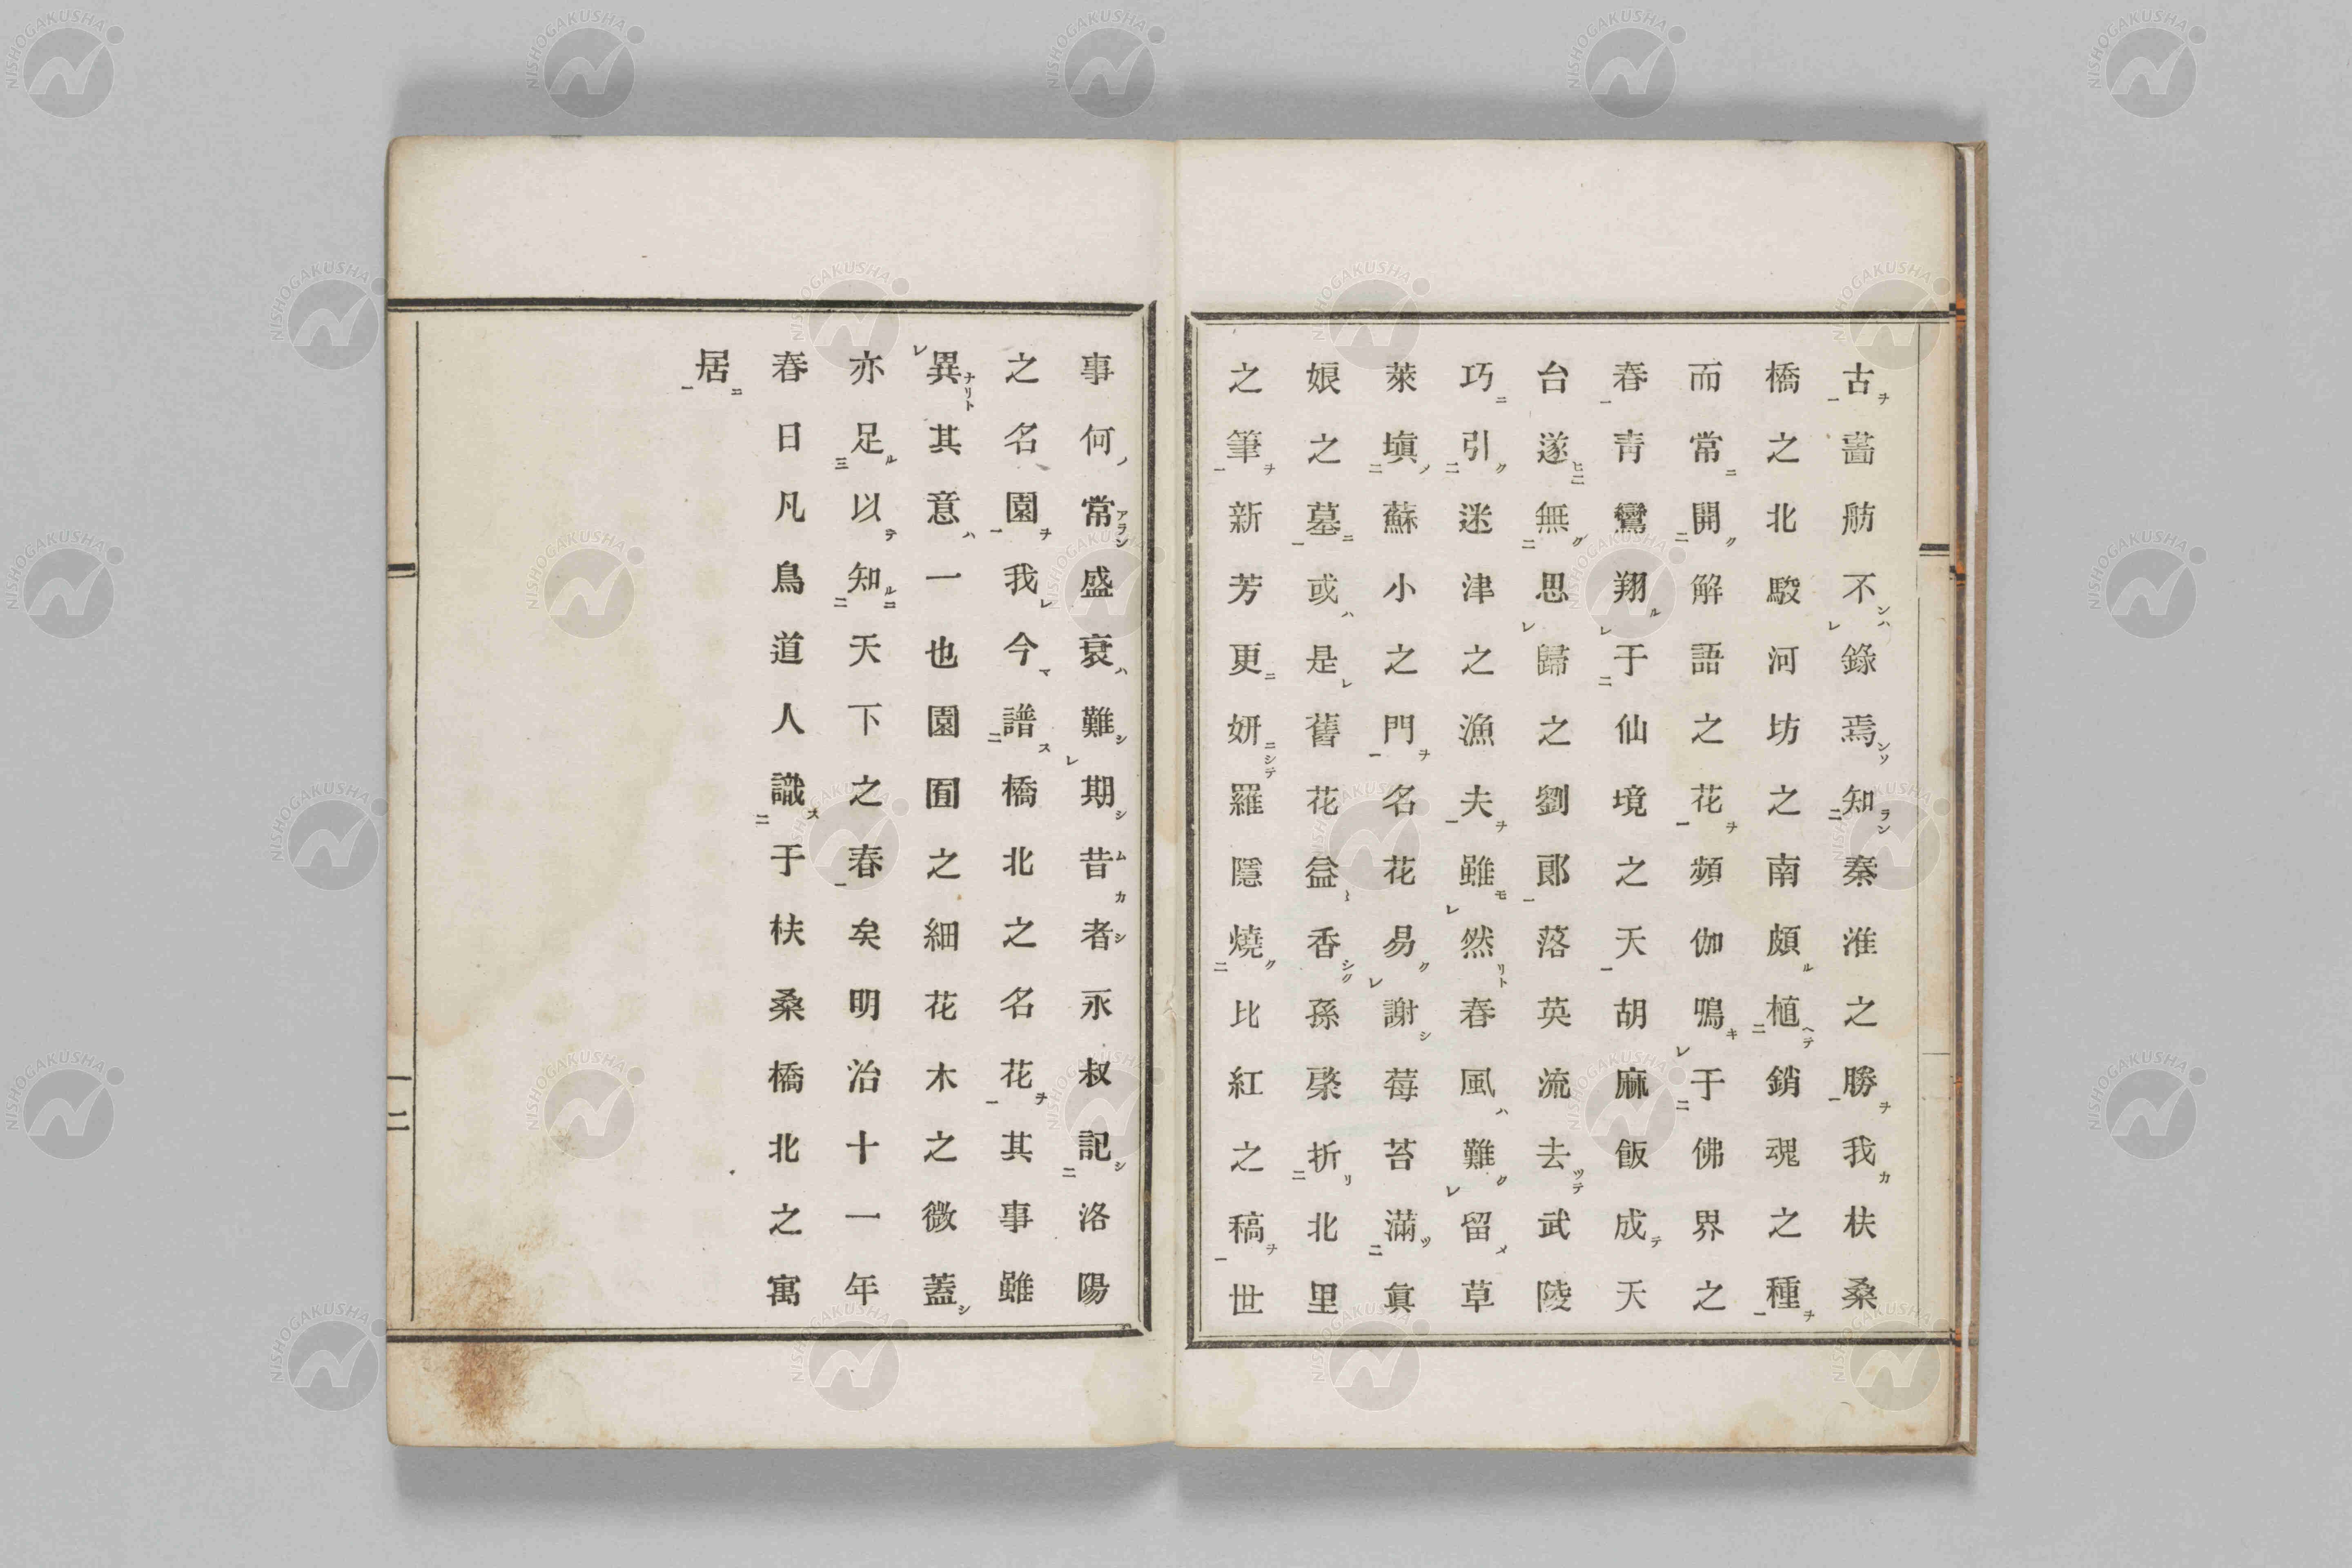 古畵舫不錄焉知秦淮之勝我扶桑
橋之北駿河坊之南頗植銷魂之種
而常開解語之花頻伽鳴于佛界之
春靑鸞翔于仙境之天胡麻飯成天
台遂無思歸之劉郎落英流去武陵
巧引迷津之漁夫雖然春風難留草
萊塡蘇小之門名花易謝莓苔滿眞
娘之墓或是舊花益香孫棨折北里
之筆新芳更妍羅隱燒比紅之稿世
事何常盛衰難期昔者永叔記洛陽
之名園我今譜橋北之名花其事雖
異其意一也園囿之細花木之微蓋
亦足以知天下之春矣明治十一年
春日凡鳥道人識于扶桑橋北之寓
居
一二